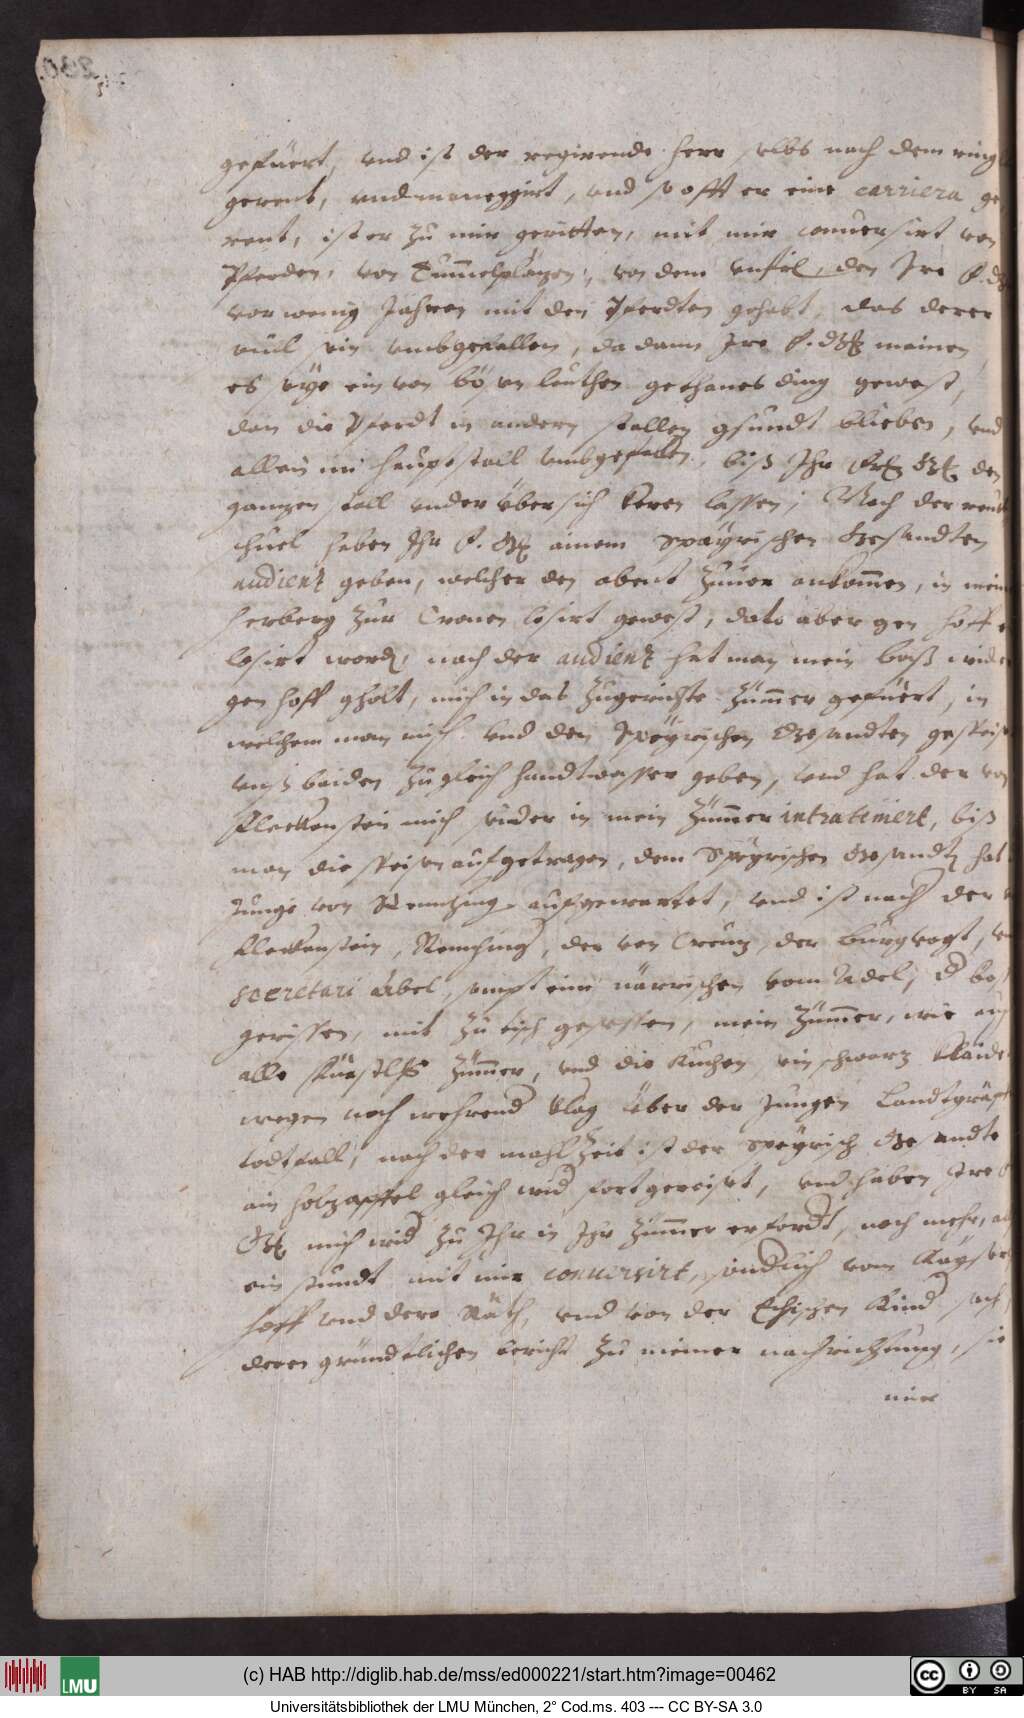 gefüert, vnd ist der regirende herr selbs nach dem ring
gerent, vnd maneggirt, vnd so offt er eine carriera ge
rent, ist er zu mir geritten, mit mir conuersirt von
Pferden, von Tummelpläzen, von dem vnfal, den Ire F. G.
vor wenig Jahren mit den Pferdten gehabt, das derer
viil sein vmbgefallen, da dann Ire F. G. mainen
es seye ein von bösen leüthen gethanes ding gewest,
dan die Pferdt in andern stallen gsundt blieben, vnd
allein im haupstall vmbgefallen, biß Ihr G. den
ganzen stall vnder übersich keren lassen; Nach der reut
schuel haben Ihr F. G. ainem Speyrischen Gesandten
audienz geben, welcher den abent zuuor ankommen, in mein
herberg zur Cronen losirt gewest, dato aber gen hoff
losirt word, nach der audienz hat man mein baß wide
gen hoff gholt, mich in das zugerichte zimmer gefüert, in
welchem man mich vnd den Speyrischen Gesandten gespeis
vnß baiden zugleich handtwasser geben, vnd hat der von
Fleckenstein mich wider in mein Zimmer intratinìert, biß
man die speisen aufgetragen, dem Speyrischen Gesandt hat
Junge von Remching aufgewartet, vnd ist nach der
Fleckenstein, Remching, der von Creuz, der burgvogt,
secretari Abel, sampt eim närrischen vom Adel,
gerissen, mit zu tisch gesessen, mein Zimmer, wie auch
alle Fürstlich Zimmer, vnd die Kuchen, sein schwarz klaide
wegen noch wehrend klag über der Jungen Landtgräf
todtfall, nach der mahlzeit ist der Speyrisch Gesandte
ain holzapffel gleich wid fortgereiset, vnd haben Ire
G. mich wid zu Ihr in Ihr Zimmer erfordt, noch mehr, als
ein stundt mit mir conuersirt, vom Kayser
hoff vnd dero Räth, vnd von der Kind sach,
deren gründtlichen bericht zu meiner nachrichtung, sie
mir
(c) HAB http://diglib.hab.de/mss/ed000221/start.htm?image=00462
Universitätsbibliothek der LMU München, 2° Cod.ms. 403 --- CC BY-SA 3.0
LMU
cc BY SA